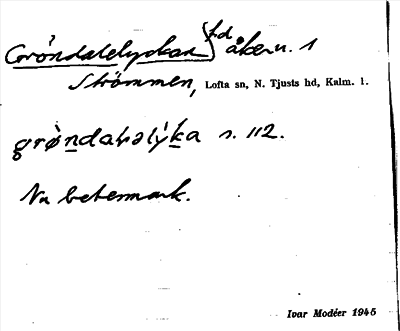 Gröndalslyckan fd åkern. 1
Strömmen, Lofta sn, N. Tjusts hd, Kalm. l.
s. 112.
Nu betesmark.
Ivar Modéer 1945